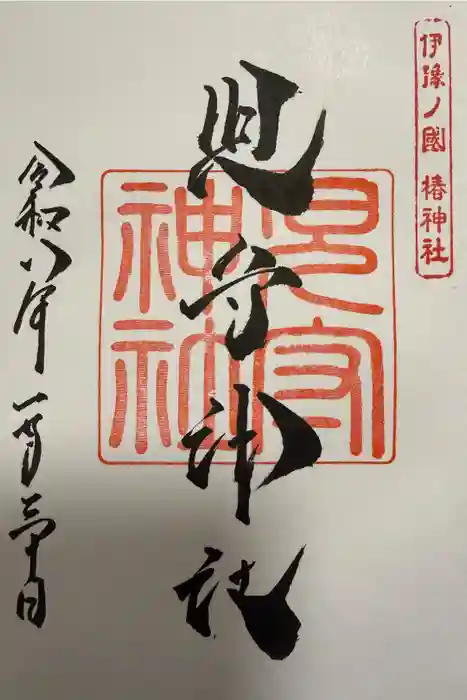 伊豫ノ國 椿神社
児守神社
児守
神社
令和八年 一月三十日